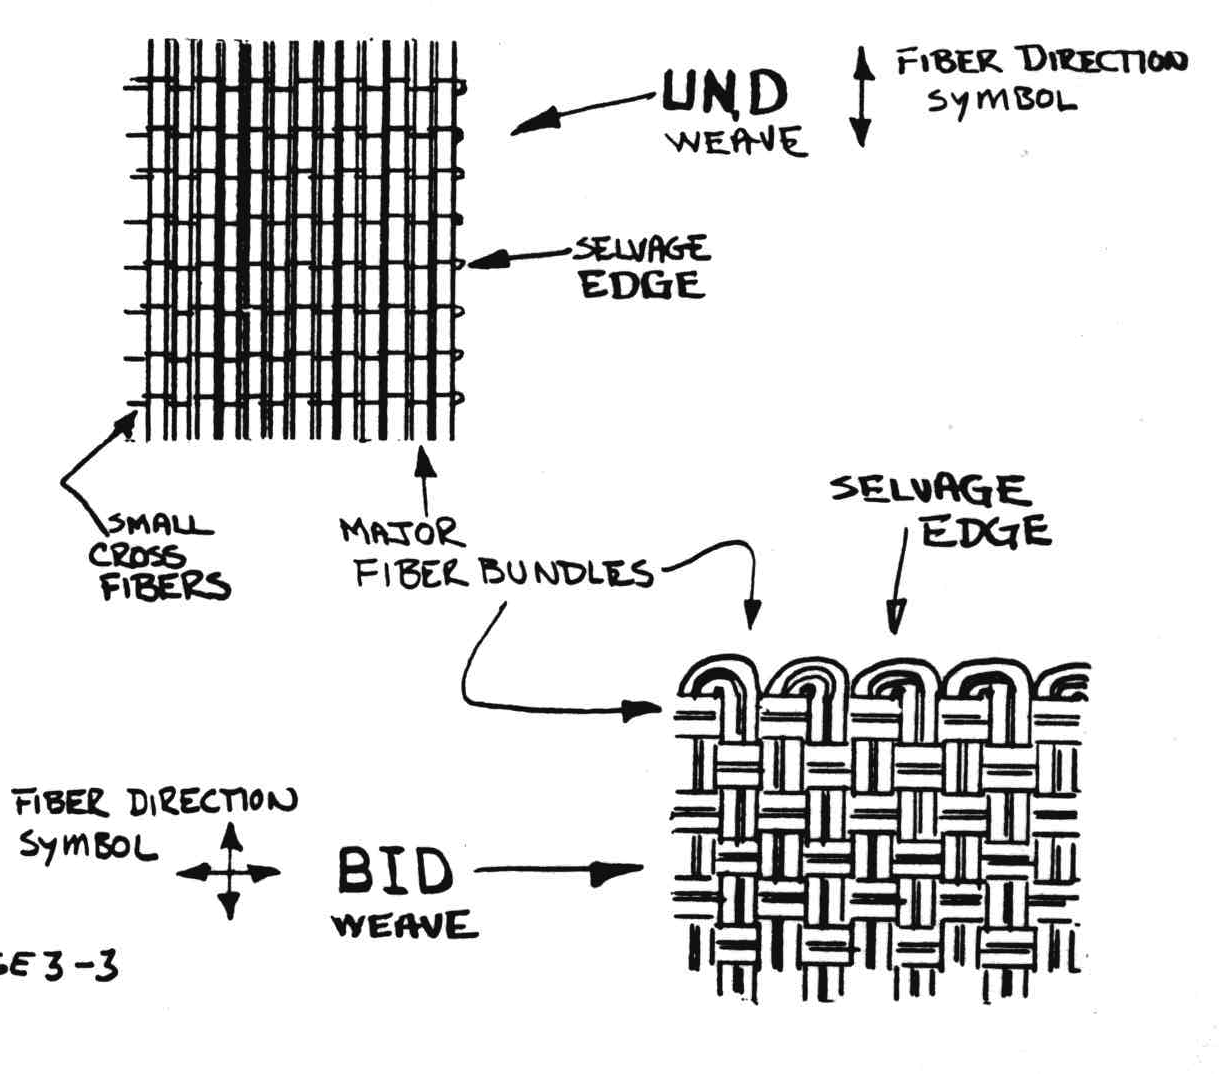 UND
WEAVE
FIBER DIRECTION
SYMBOL
SELVAGE
EDGE
SMALL
CROSS
FIBERS
MAJOR
FIBER BUNDLES
SELVAGE
EDGE
FIBER DIRECTION
SYMBOL
BID
WEAVE
GE 3-3